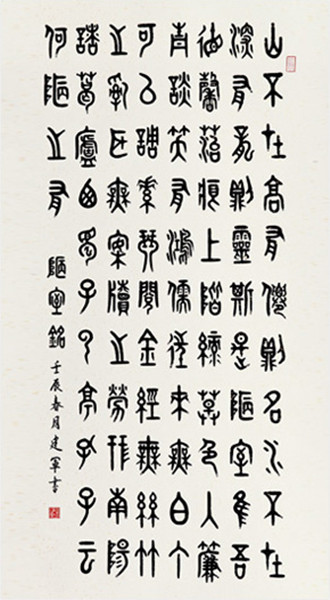 山不在高有僊則名水不在
深有龍則靈斯是陋室惟吾
德馨苔痕上階綠草色入簾
青談笑有鴻儒往來無白丁
可以調素琴閱金經無絲竹
之亂耳無案牘之勞形南陽
諸葛廬西蜀子雲亭孔子云
何陋之有
陋室銘
壬辰春月建軍書